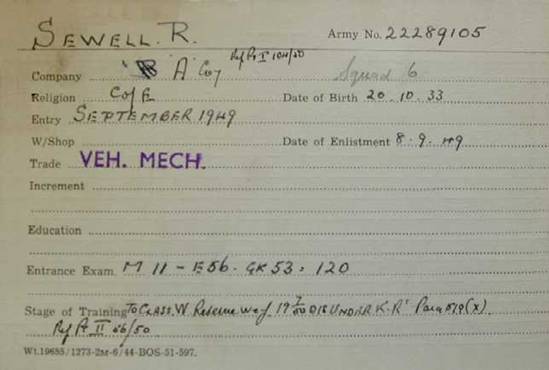 SEWELL. R. Army No. 22289105
Ref Pt I 104/50
Company 'A' Coy Squad 6
Religion C of E Date of Birth 20.10.33
Entry SEPTEMBER 1949
W/Shop Date of Enlistment 8.9.49
Trade VEH. MECH.
Increment
Education
Entrance Exam. M 11 - E56. GK53. 120
Stage of Training To CLASS. W. Reserve wef 19 7/50 DIS UNDER K.R' Para 519(X).
Ref Pt II 56/50
Wt.19685/1273-2sr-6/44-BOS-51-597.